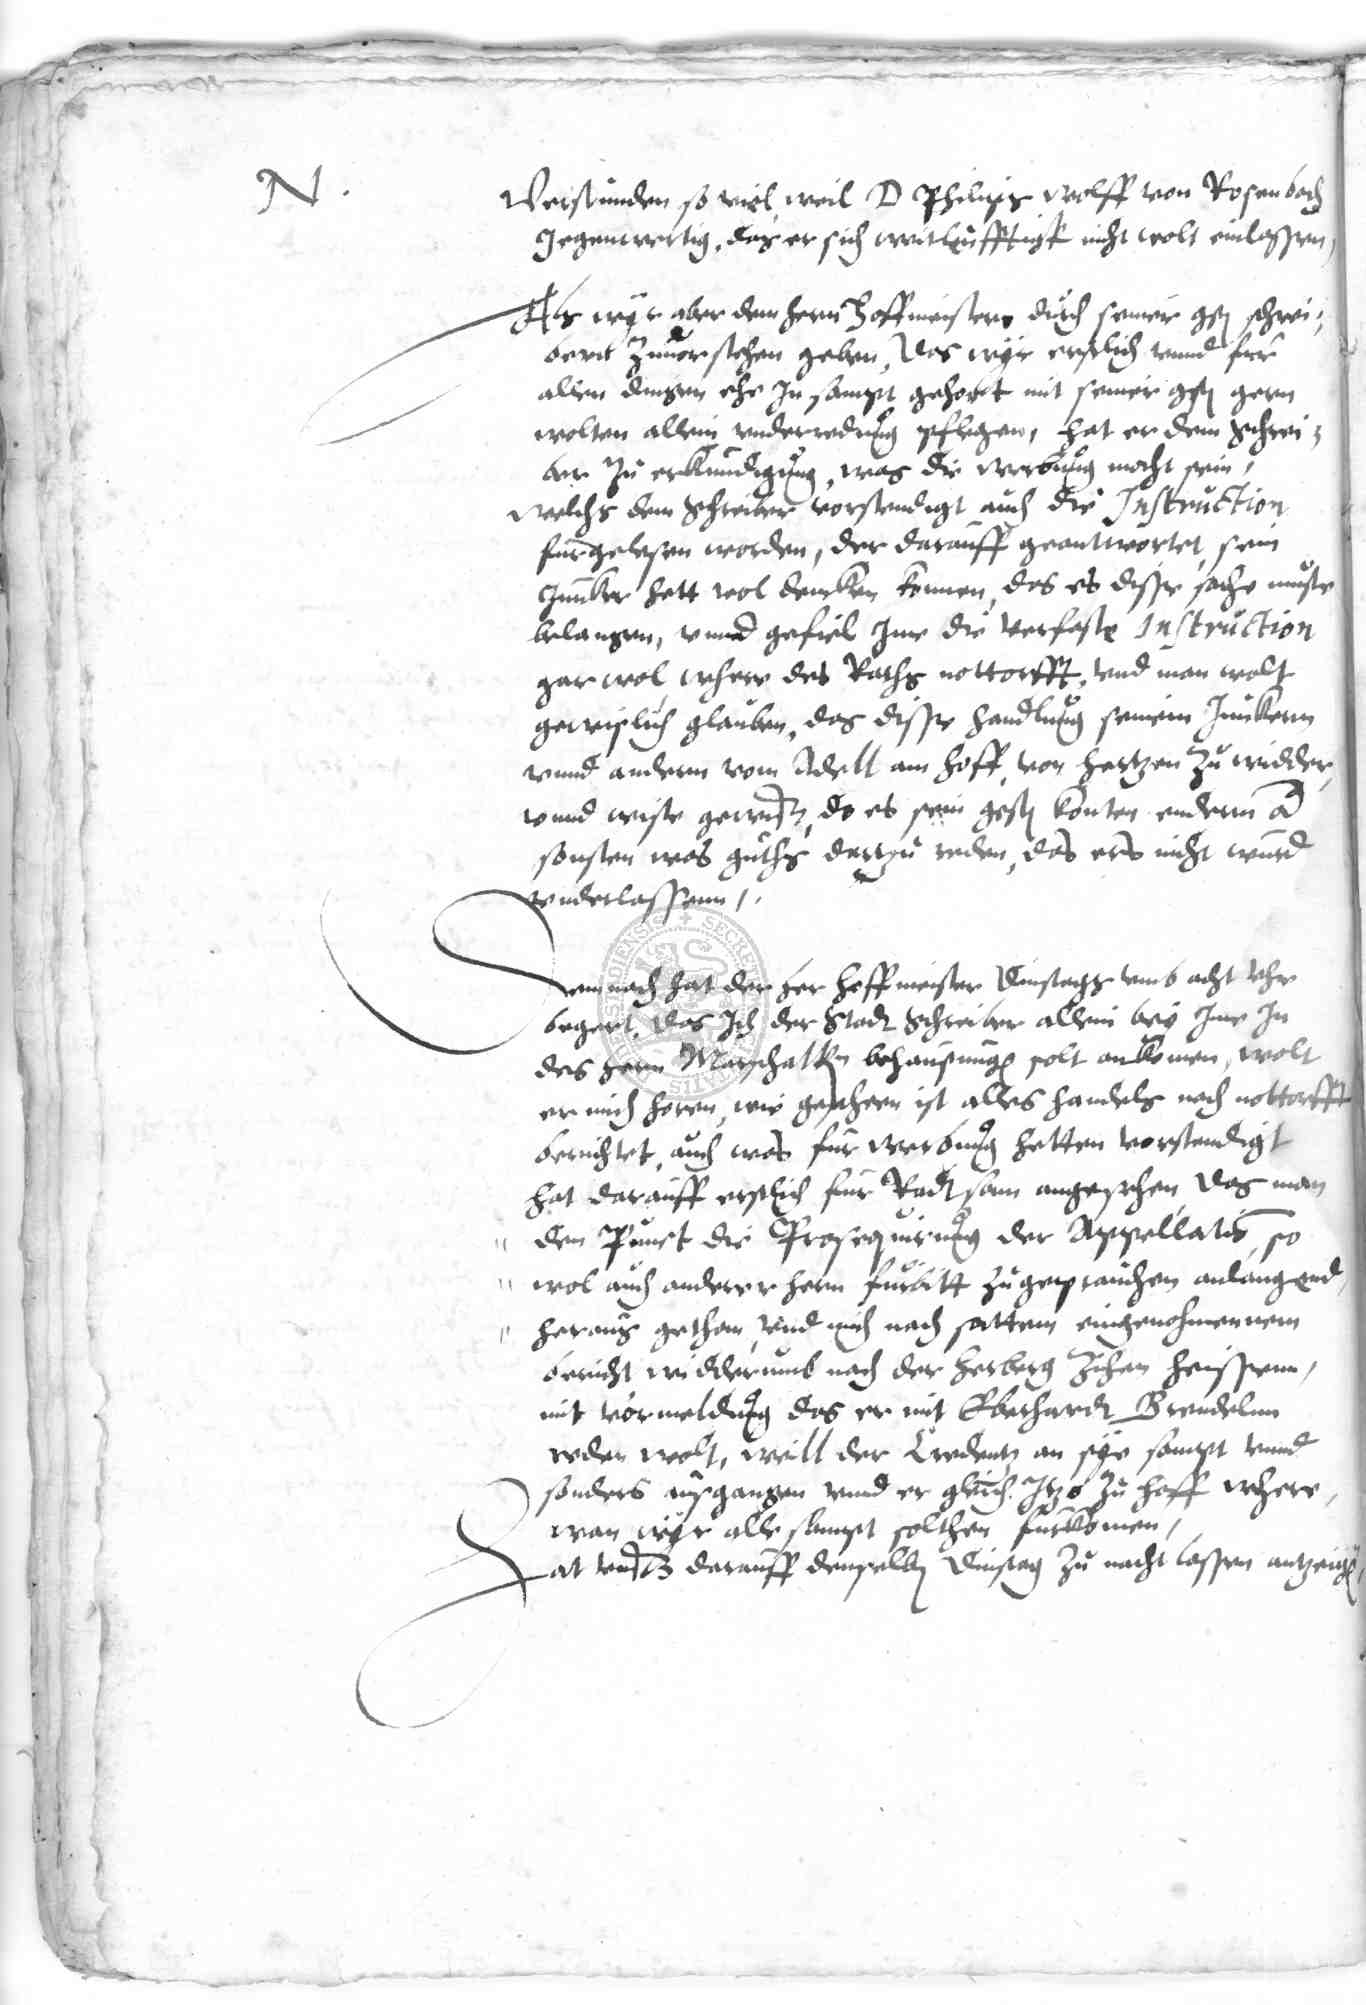 N.
Verstunden so viel, weil D Philips Wolff von Rosenbach
Jegenwertig, das er sich weitleufftigk nicht wolt einlassen,
Als wyr aber dem hern Hoffmeister durch seiner gst schrei,
bern zuuorstehen geben, Das wyr erstlich vnnd fur
allen dingen ehe In sampt gehort mit seiner gst gern
wolten allein vnderredung pflegen, hat er dem Schrei,
ber zu erkundigung, was die werbung mocht sein,
welchs dem Schreiber vorstendigt auch die Instruction
furgelesen worden, der darauff geantwortet, sein
Juncker hett wol dencken konnen, das es disse sache muste
belangen, vnnd gefiel Ime die verfaste Instruction
gar wol, where des Raths nottorfft, vnd man wolt
gewislich glauben, das disse handlung seinem Junckern
vnnd andern vom Adell am hoff, von hertzen zu widder,
vnnd wiste gewis, do es sein gst konten endern
sonsten was guths dartzu reden, das ers nicht wurd
vnderlassenn,
Demnach hat der her hoffmeister Dinstags vmb acht Vhr
begert, das Ich der Stadt Schreiber allein bey Ime In
des hern Marschalken behausung solt ankomen, wolt
er mich horen, wie geschehen ist alles handels nach nottorfft
berichtet, auch was fur werbung hetten vorstendigt
hat darauff erstlich fur Radtsam angesehen, Das man
den Punct die Prosequirung der Appellation, so
wol auch anderer hern furbitt zugeprauchen anlangend,
heraus gethan, vnd mich nach sattem eingenohmennem
bericht widderumb nach der herberg zihen heissenn,
mit vormeldung das er mit Eberhardt Brendeln
reden wolt, weill der Credentz an sye sampt vnnd
sonders ausgangen vnnd er gleich Itzo zu hoff where,
wan wyr alle sampt solthen furkomen,
Hat vns darauff denselben Dinstag zu nacht lassen antzeigen,